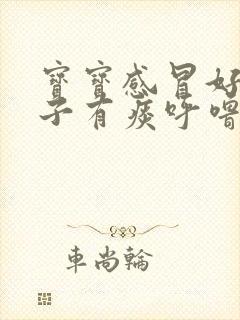 寶寶感冒好
子有痰呼嚕
車尚輪